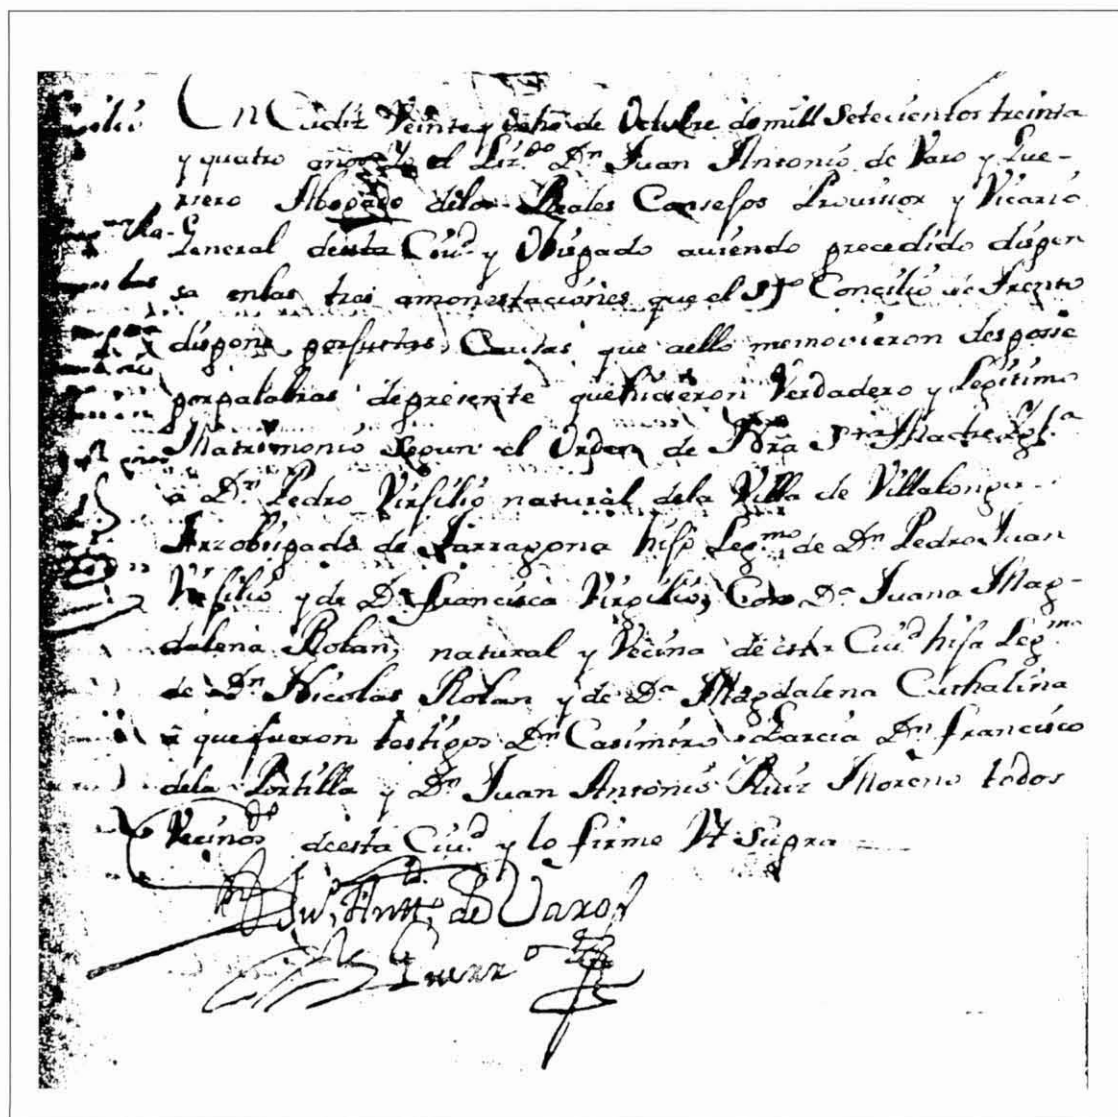 En Cadiz Veinte y ocho de Octubre de mill Setecientos treinta
y quatro años Yo el Liz.do Dn Juan Antonio de Varo y Gue-
rrero Abogado delos Reales Consejos Provisor y Vicario
General desta Ciud y Obispado aviendo precedido dispen
sa enlas tres amonestaciones que el Sto Concilio de Trento
dispone por justas Causas que aello memovieron despose
por palabras de presente que hicieron Verdadero y Legitimo
Matrimonio segun el Orden de Nra Sta Madre Iglª
a Dn Pedro Virgilio natural dela Villa de Villalonga
Arzobispado de Tarragona hijo Legmo de Dn Pedro Juan
Virgilio y de Dª francisca Virgilio, Con Dª Juana Mag-
dalena Rolan, natural y Vecina de esta Ciud hija Legma
de Dn Nicolas Rolan y de Dª Magdalena Cathalina
a que fueron testigos Dn Casimiro Garcia Dn francisco
dela Portilla y Dn Juan Antonio Ruiz Moreno todos
Vecinos deesta Ciud y lo firme Vt Supra
Antt.o de Varo y
Guerr.o